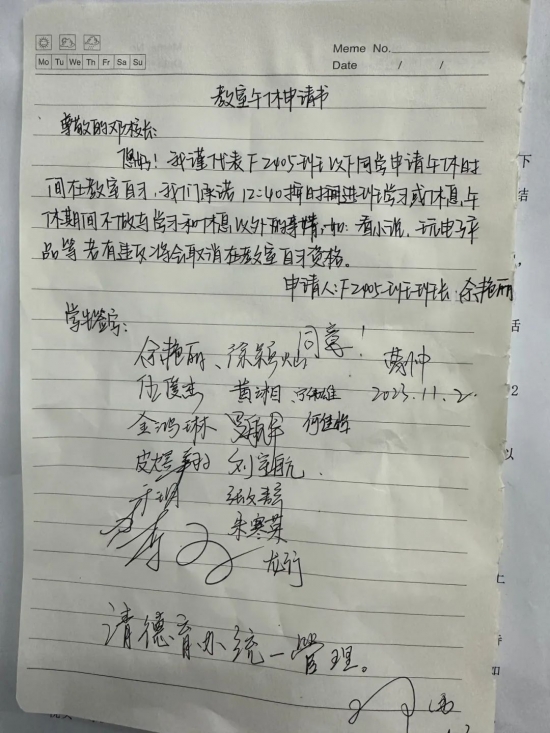 Meme No.
Date / /
Mo Tu We Th Fr Sa Su
教室午休申请书
尊敬的邓校长:
您好!我谨代表F2405班以下同学申请午休时
间在教室自习,我们承诺12:40按时进班学习或休息,午
休期间不做与学习和休息以外的事情,如:看小说、玩电子产
品等 若有违反将会取消在教室自习资格。
申请人:F2405班班长:余艳丽
学生签字:
同意!
余艳丽、徐颖
伍俊杰 黄湘
2023.11.2
金鸿琳 何佳
皮煜 刘宇航
张文
朱寒菜
龙行
请德育办统一管理。
下
结
活
2
以
上
如